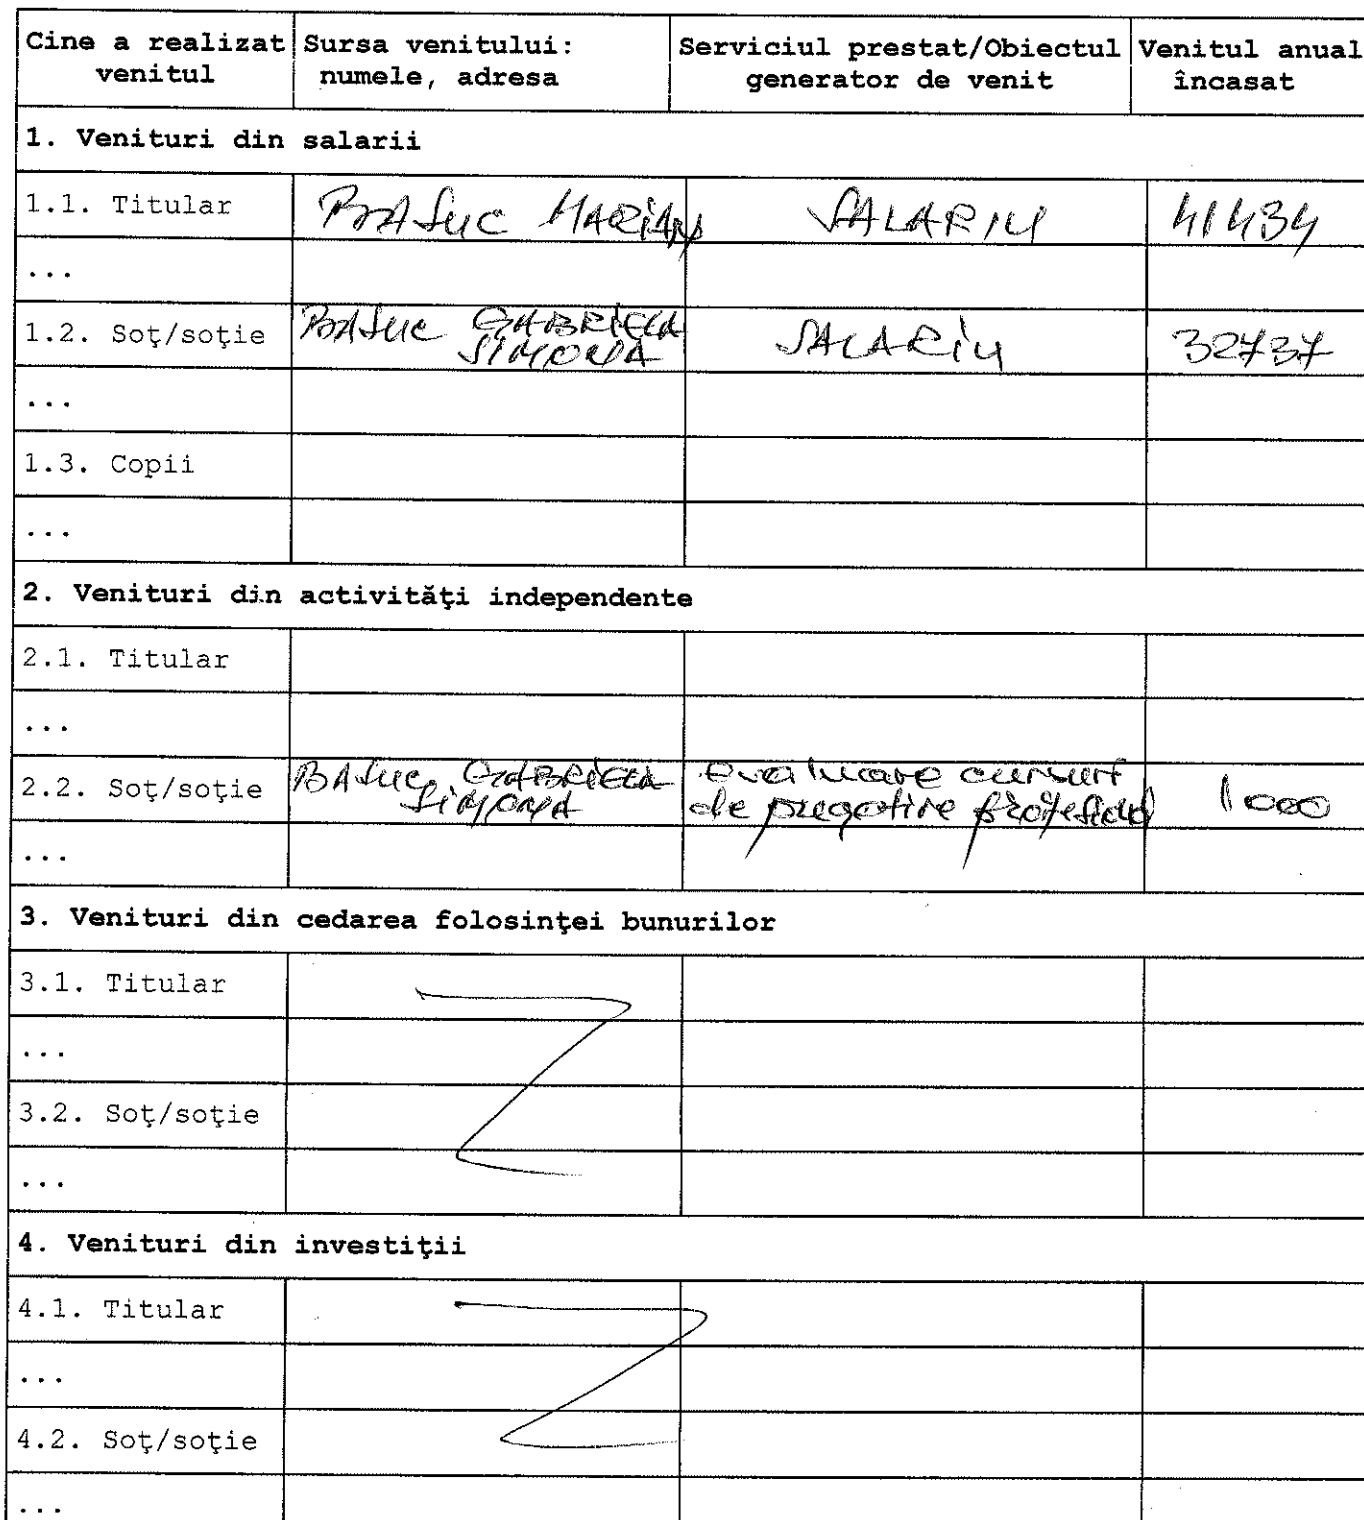 Cine a realizat venitul Sursa venitului: numele, adresa Serviciul prestat/Obiectul generator de venit Venitul anual încasat
1. Venituri din salarii
1.1. Titular BASUC MARIAN SALARIU 41434
...
1.2. Soţ/soţie BASUC GABRIELA SIMONA SALARIU 32737
...
1.3. Copii
...
2. Venituri din activităţi independente
2.1. Titular
...
2.2. Soţ/soţie BASUC GABRIELA SIMONA evaluare cursuri de pregatire 1000
...
3. Venituri din cedarea folosinţei bunurilor
3.1. Titular
...
3.2. Soţ/soţie
...
4. Venituri din investiţii
4.1. Titular
...
4.2. Soţ/soţie
...